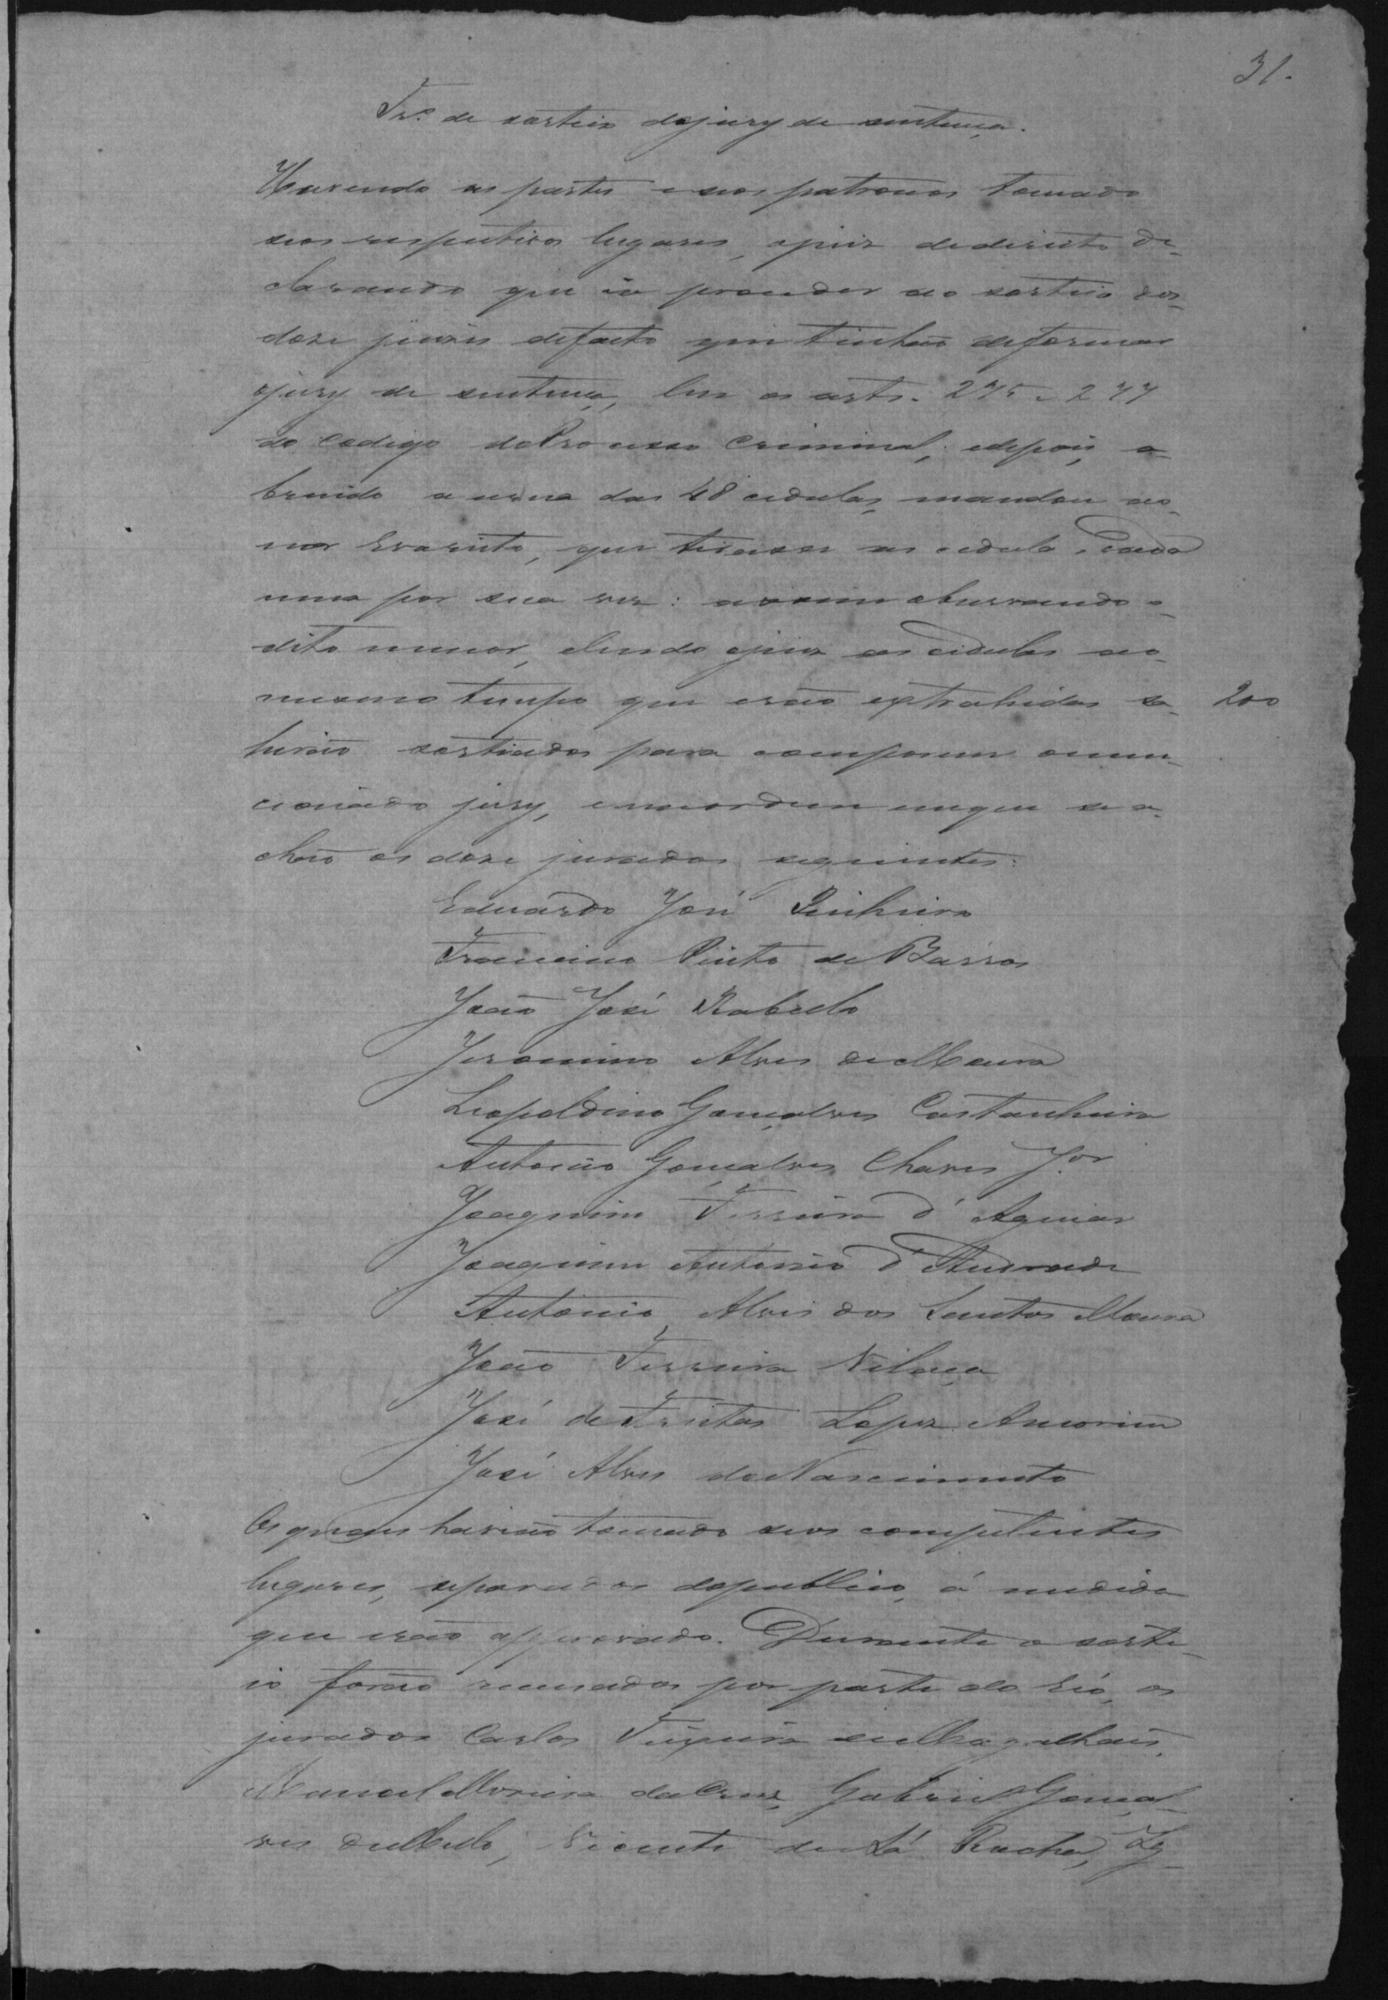 31.
Tr.º de sorteio do jury de sentença.
Havendo as partes e seos patronos tomado
seos respectivos lugares, o juiz de direito de-
clarando que ia proceder ao sorteio dos
doze juizes de facto que tinhão de formar
o jury de sentença, leu os arts. 275 e 277
do Codigo do Processo Criminal; e depois, a-
brindo a urna das 48 cedulas, mandou ao
menor Evaristo, que tirasse as cedulas, cada
uma por sua vez: assim observando o
dito menor, e lendo o juiz as cedulas ao
mesmo tempo que erão extrahidas sa-
200
hirão sorteados para comporem o men-
cionado jury, e na ordem em que se a-
chão os doze jurados seguintes:
Eduardo José Pinheiro
Francisco Pinto de Barros
João José Rabello
Jeronimo Alves de Moura
Leopoldino Gonçalves Castanheira
Antonio Gonçalves Chaves J.or
Joaquim Ferreira d'Aguiar
Joaquim Antonio d'Andrade
Antonio Alves dos Santos Moura
João Ferreira Vilaça
José de Freitas Lopez Amorim
José Alves do Nascimento
Os quaes havião tomado seos competentes
lugares, separados do publico, á medida
que erão approvados. Durante o sorte-
io forão recusados por parte do réo, os
jurados Carlos Teixeira de Magalhães,
Manoel Moreira da Cruz, Gabriel Gonçal-
ves de Mello, Vicente de Sá Rocha,